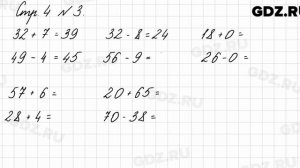 Стр. 4 № 3.
GDZ.RU
32 + 7 = 39 32 - 8 = 24 18 + 0 =
49 - 4 = 45 56 - 9 = 26 - 0 =
57 + 6 = 20 + 65 =
28 + 4 = 70 - 38 =